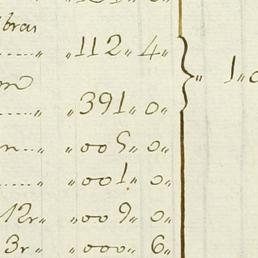 "112" 4"
" 1"0
"391" 0"
"005" 0"
"001" 0"
12r" "009" 0"
3r" "000" 6"